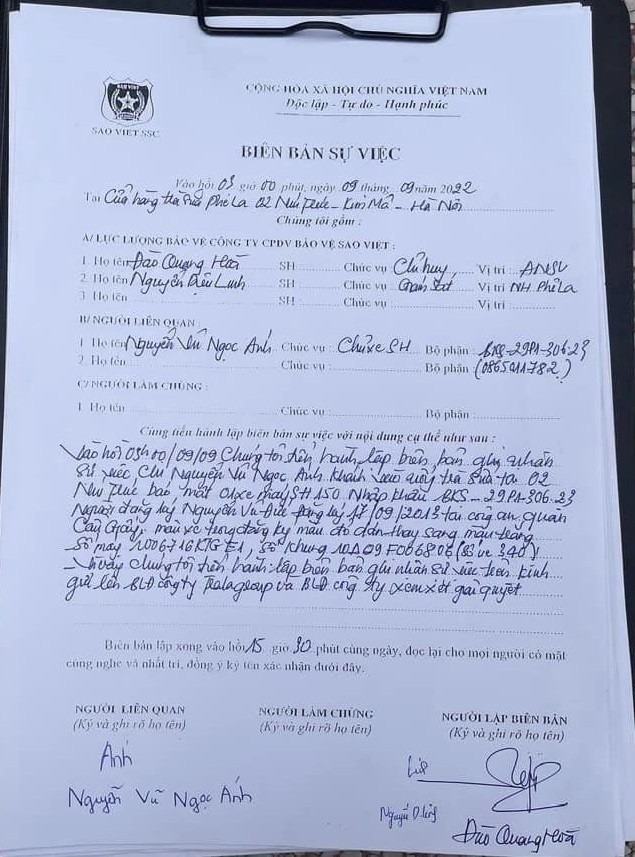 CỘNG HÒA XÃ HỘI CHỦ NGHĨA VIỆT NAM
Độc lập - Tự do - Hạnh phúc
SAO VIET SSC
BIÊN BẢN SỰ VIỆC
Vào hồi 03 giờ 00 phút, ngày 09 tháng 09 năm 2022
Tại Cửa hàng trà sữa Phê La 02 Núi Trúc - Kim Mã - Hà Nội
Chúng tôi gồm :
A/ LỰC LƯỢNG BẢO VỆ CÔNG TY CPDV BẢO VỆ SAO VIỆT :
1. Họ tên Đào Quang Hoà SH Chức vụ Chỉ huy Vị trí ANSV
2. Họ tên Nguyễn Diệu Linh SH Chức vụ Giám Sát Vị trí NH Phê La
3. Họ tên SH Chức vụ Vị trí
B/ NGƯỜI LIÊN QUAN
1. Họ tên Nguyễn Vũ Ngọc Ánh Chức vụ : Chủ xe SH Bộ phận : BKS-29P1-306.23
2. Họ tên Chức vụ : Bộ phận : (0865211782)
C/ NGƯỜI LÀM CHỨNG :
1. Họ tên Chức vụ : Bộ phận :
Cùng tiến hành lập biên bản sự việc với nội dung cụ thể như sau :
Vào hồi 03h00/09/09 Chúng tôi tiến hành lập biên bản ghi nhận
Sự việc, Chị Nguyễn Vũ Ngọc Ánh Khách vào uống trà sữa tại 02
Núi Trúc báo mất 01 xe máy SH 150 Nhập khẩu BKS - 29P1-306.23
Người đăng ký Nguyễn Vũ Đức Đăng ký 17/09/2013 tại công an quận
Cầu Giấy, màu xe trong đăng ký màu đỏ dán thay sang màu trắng
Số máy Số khung
Vì vậy chúng tôi tiến hành lập biên bản ghi nhận sự việc trên kính
gửi lên BLĐ công ty và BLĐ công ty xem xét giải quyết
Biên bản lập xong vào hồi 15 giờ 30 phút cùng ngày, đọc lại cho mọi người có mặt
cùng nghe và nhất trí, đồng ý ký tên xác nhận dưới đây.
NGƯỜI LIÊN QUAN NGƯỜI LÀM CHỨNG NGƯỜI LẬP BIÊN BẢN
(Ký và ghi rõ họ tên) (Ký và ghi rõ họ tên) (Ký và ghi rõ họ tên)
Ánh
Nguyễn Vũ Ngọc Ánh
Nguyễn D. Linh
Đào Quang Hoà